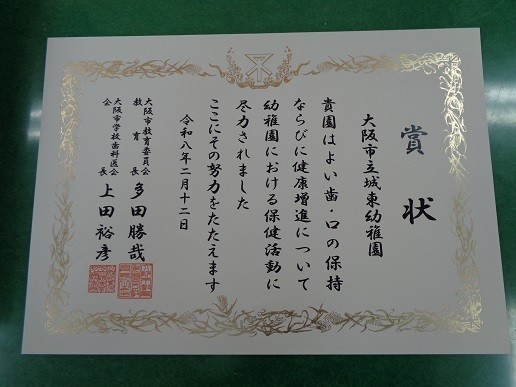 賞状
大阪市立城東幼稚園
貴園はよい歯・口の保持
ならびに健康増進について
幼稚園における保健活動に
尽力されました
ここにその努力をたたえます
令和八年二月十二日
大阪市教育委員会
教育長 多田勝哉
大阪市学校歯科医会
会長 上田裕彦